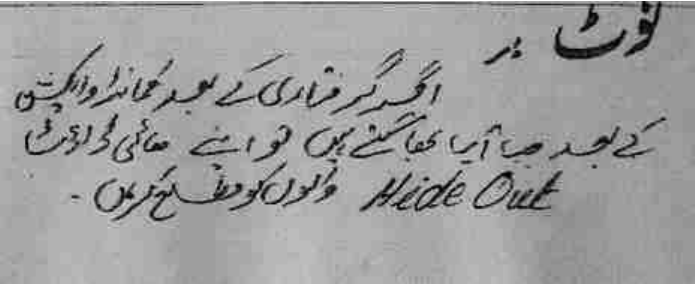 نوٹ :ـ
اگر گرفتاری کے بعد کمانڈو ایکشن
کے بعد جب آپ بھاگتے ہیں تو اپنے ہائی ڈ آؤٹ
Hide Out والوں کو مطلع کریں ۔